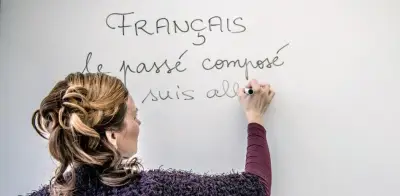 FRANÇAIS
Le passé composé
suis all